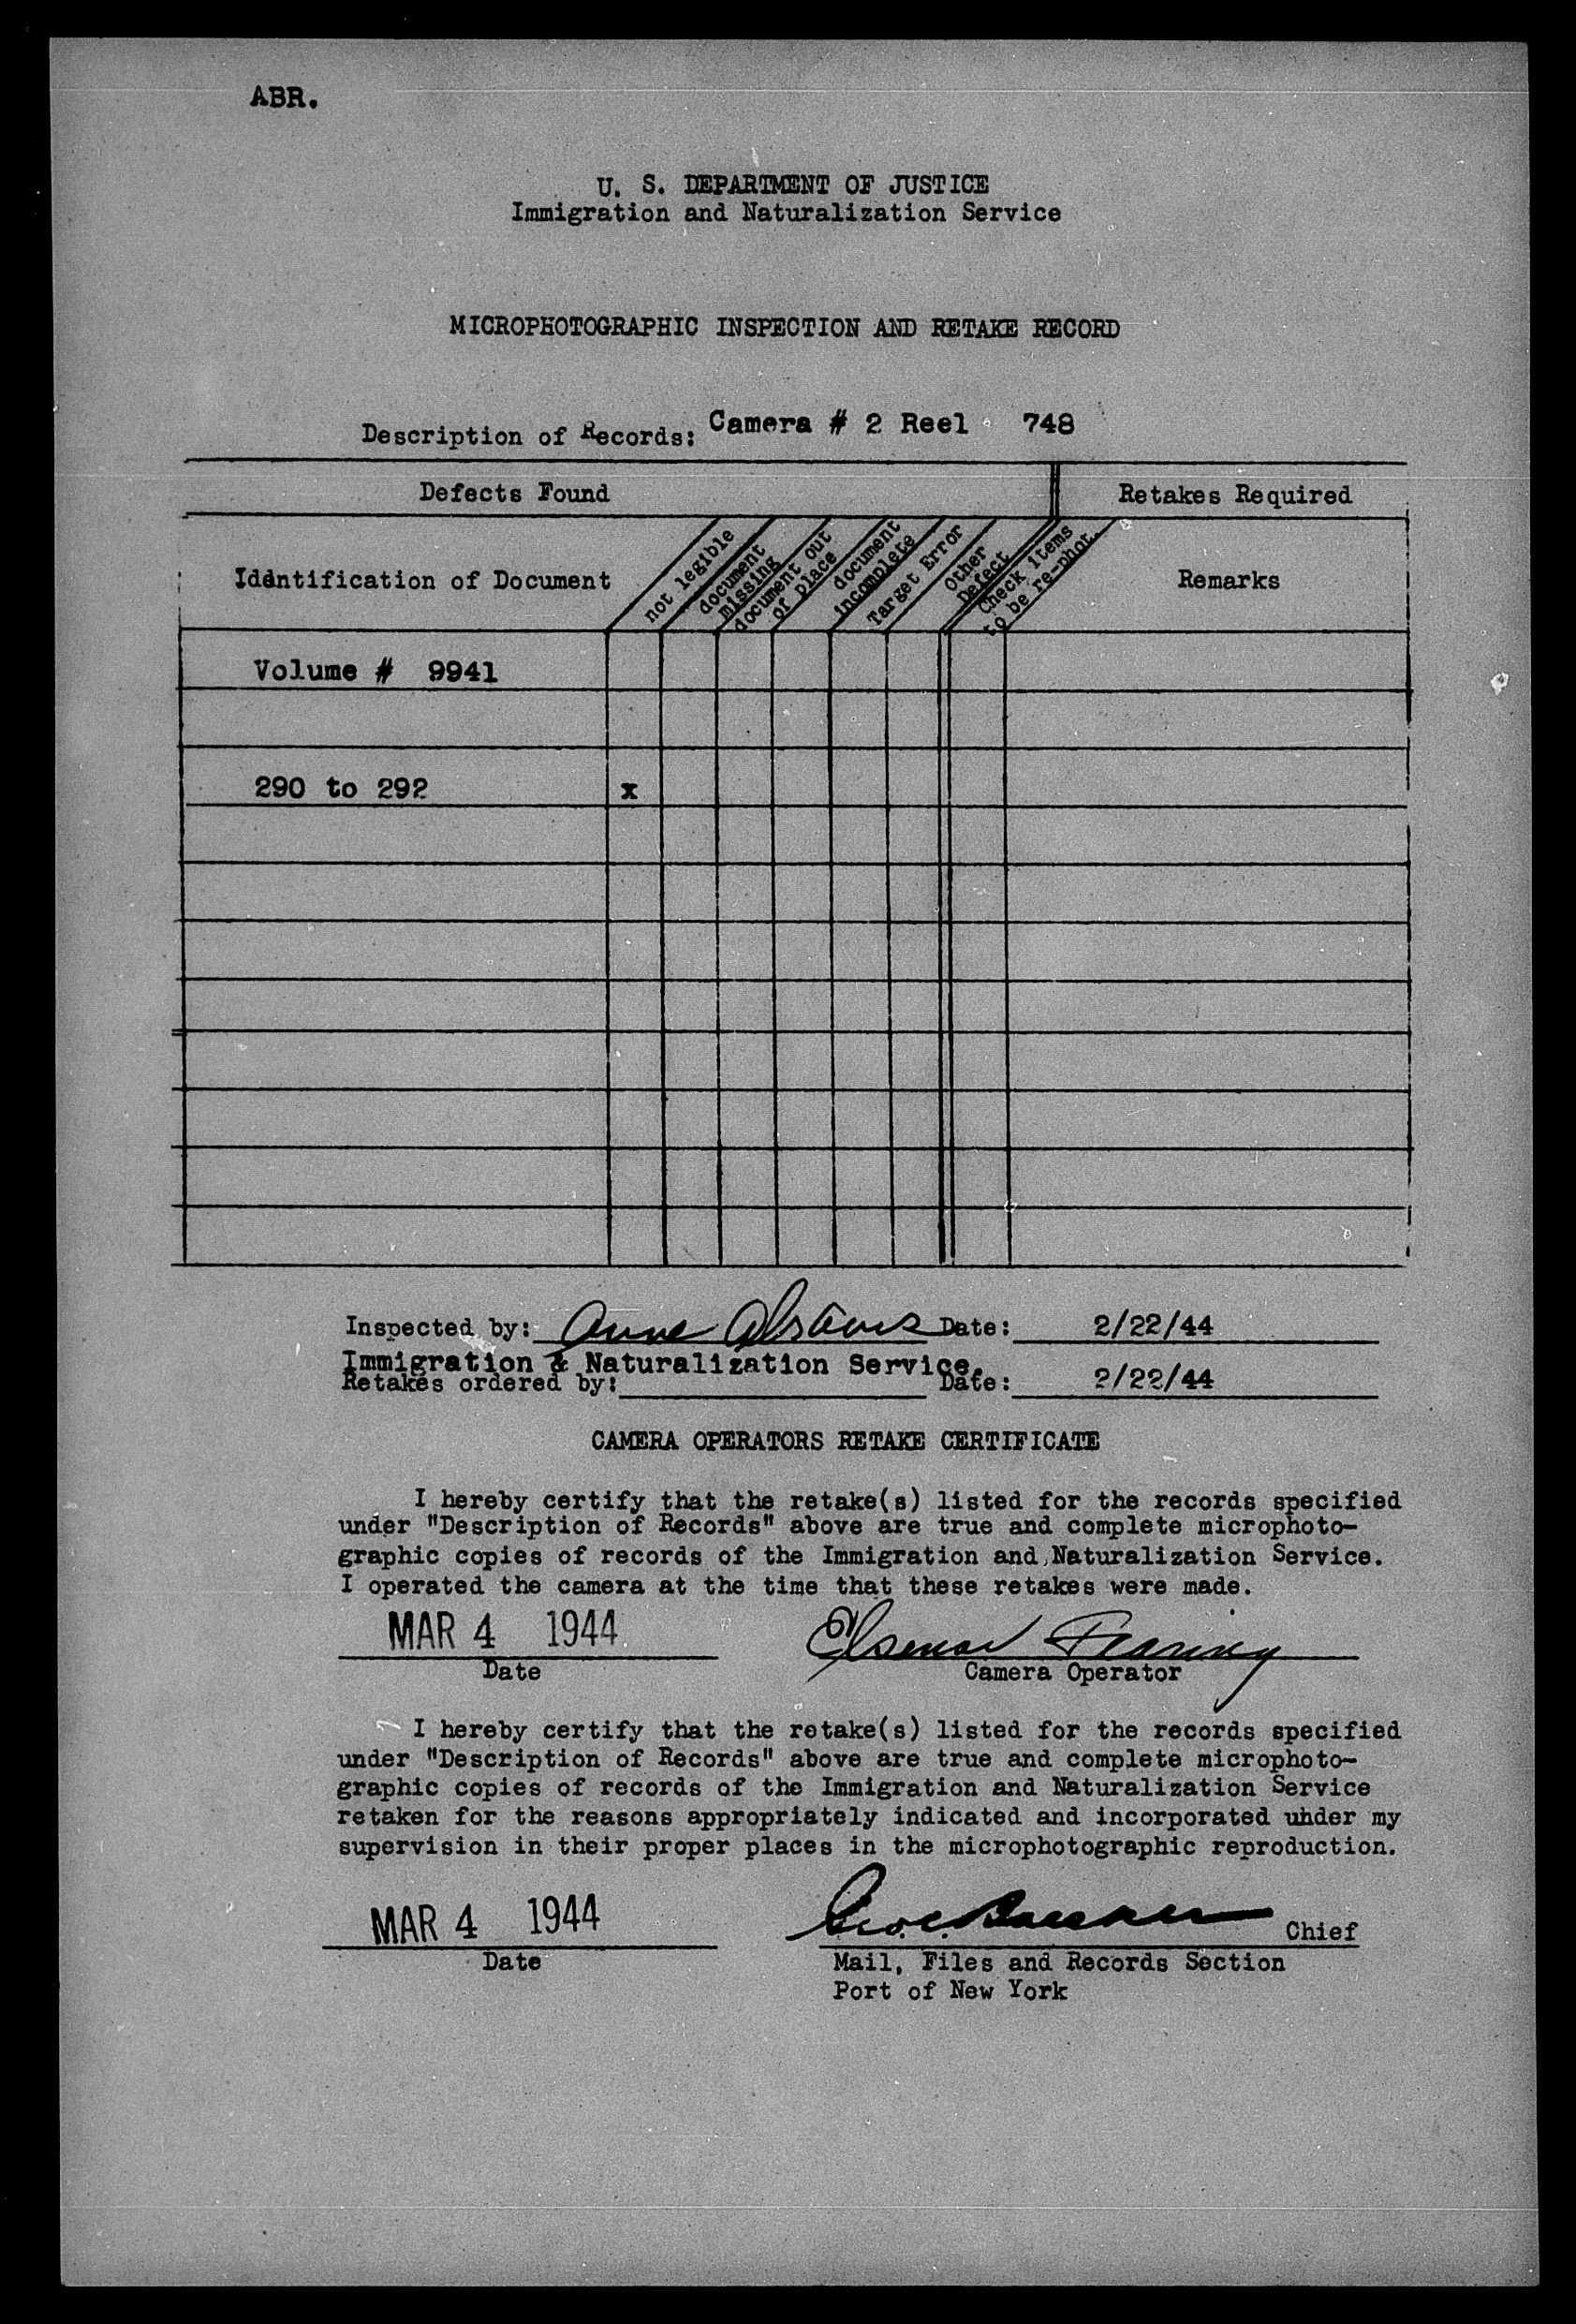 ABR.
U. S. DEPARTMENT OF JUSTICE
Immigration and Naturalization Service
MICROPHOTOGRAPHIC INSPECTION AND RETAKE RECORD
Description of Records: Camera # 2 Reel 748
Defects Found
Retakes Required
Identification of Document
not legible
document missing
document out of place
document incomplete
Target Error
Other Defect
Check items to be re-phot.
Remarks
Volume # 9941
290 to 292 x
Inspected by: Anne Abrams Date: 2/22/44
Immigration & Naturalization Service.
Retakes ordered by: Date: 2/22/44
CAMERA OPERATORS RETAKE CERTIFICATE
I hereby certify that the retake(s) listed for the records specified
under "Description of Records" above are true and complete microphoto-
graphic copies of records of the Immigration and Naturalization Service.
I operated the camera at the time that these retakes were made.
MAR 4 1944
Date
Camera Operator
I hereby certify that the retake(s) listed for the records specified
under "Description of Records" above are true and complete microphoto-
graphic copies of records of the Immigration and Naturalization Service
retaken for the reasons appropriately indicated and incorporated uhder my
supervision in their proper places in the microphotographic reproduction.
MAR 4 1944
Date
Chief
Mail, Files and Records Section
Port of New York